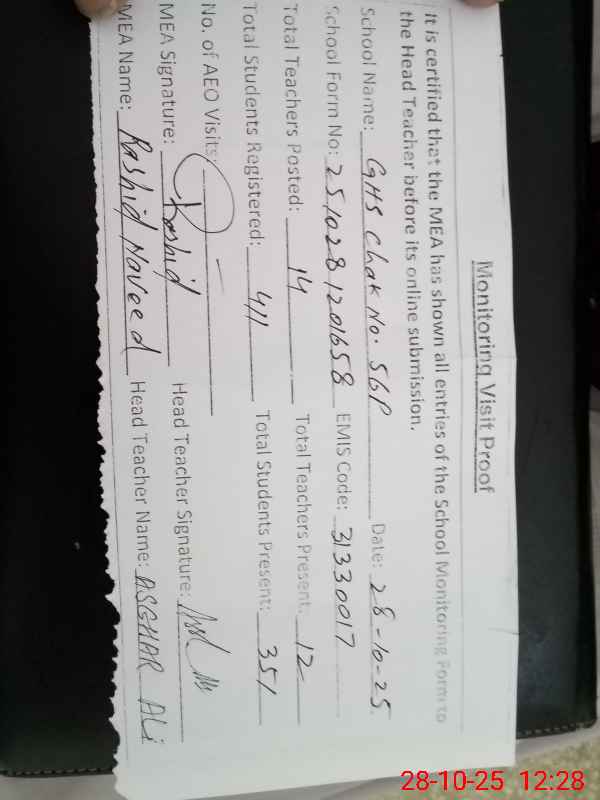 Monitoring Visit Proof
It is certified that the MEA has shown all entries of the School Monitoring Form to
the Head Teacher before its online submission.
School Name: GHS Chak No. 56P Date: 28-10-25.
School Form No: 2510281201658 EMIS Code: 31330017
Total Teachers Posted: 14 Total Teachers Present: 12
Total Students Registered: 411 Total Students Present: 351
No. of AEO Visits: —
MEA Signature: Rashid Head Teacher Signature:
MEA Name: Rashid Naveed Head Teacher Name: ASGHAR ALi
28-10-25 12:28